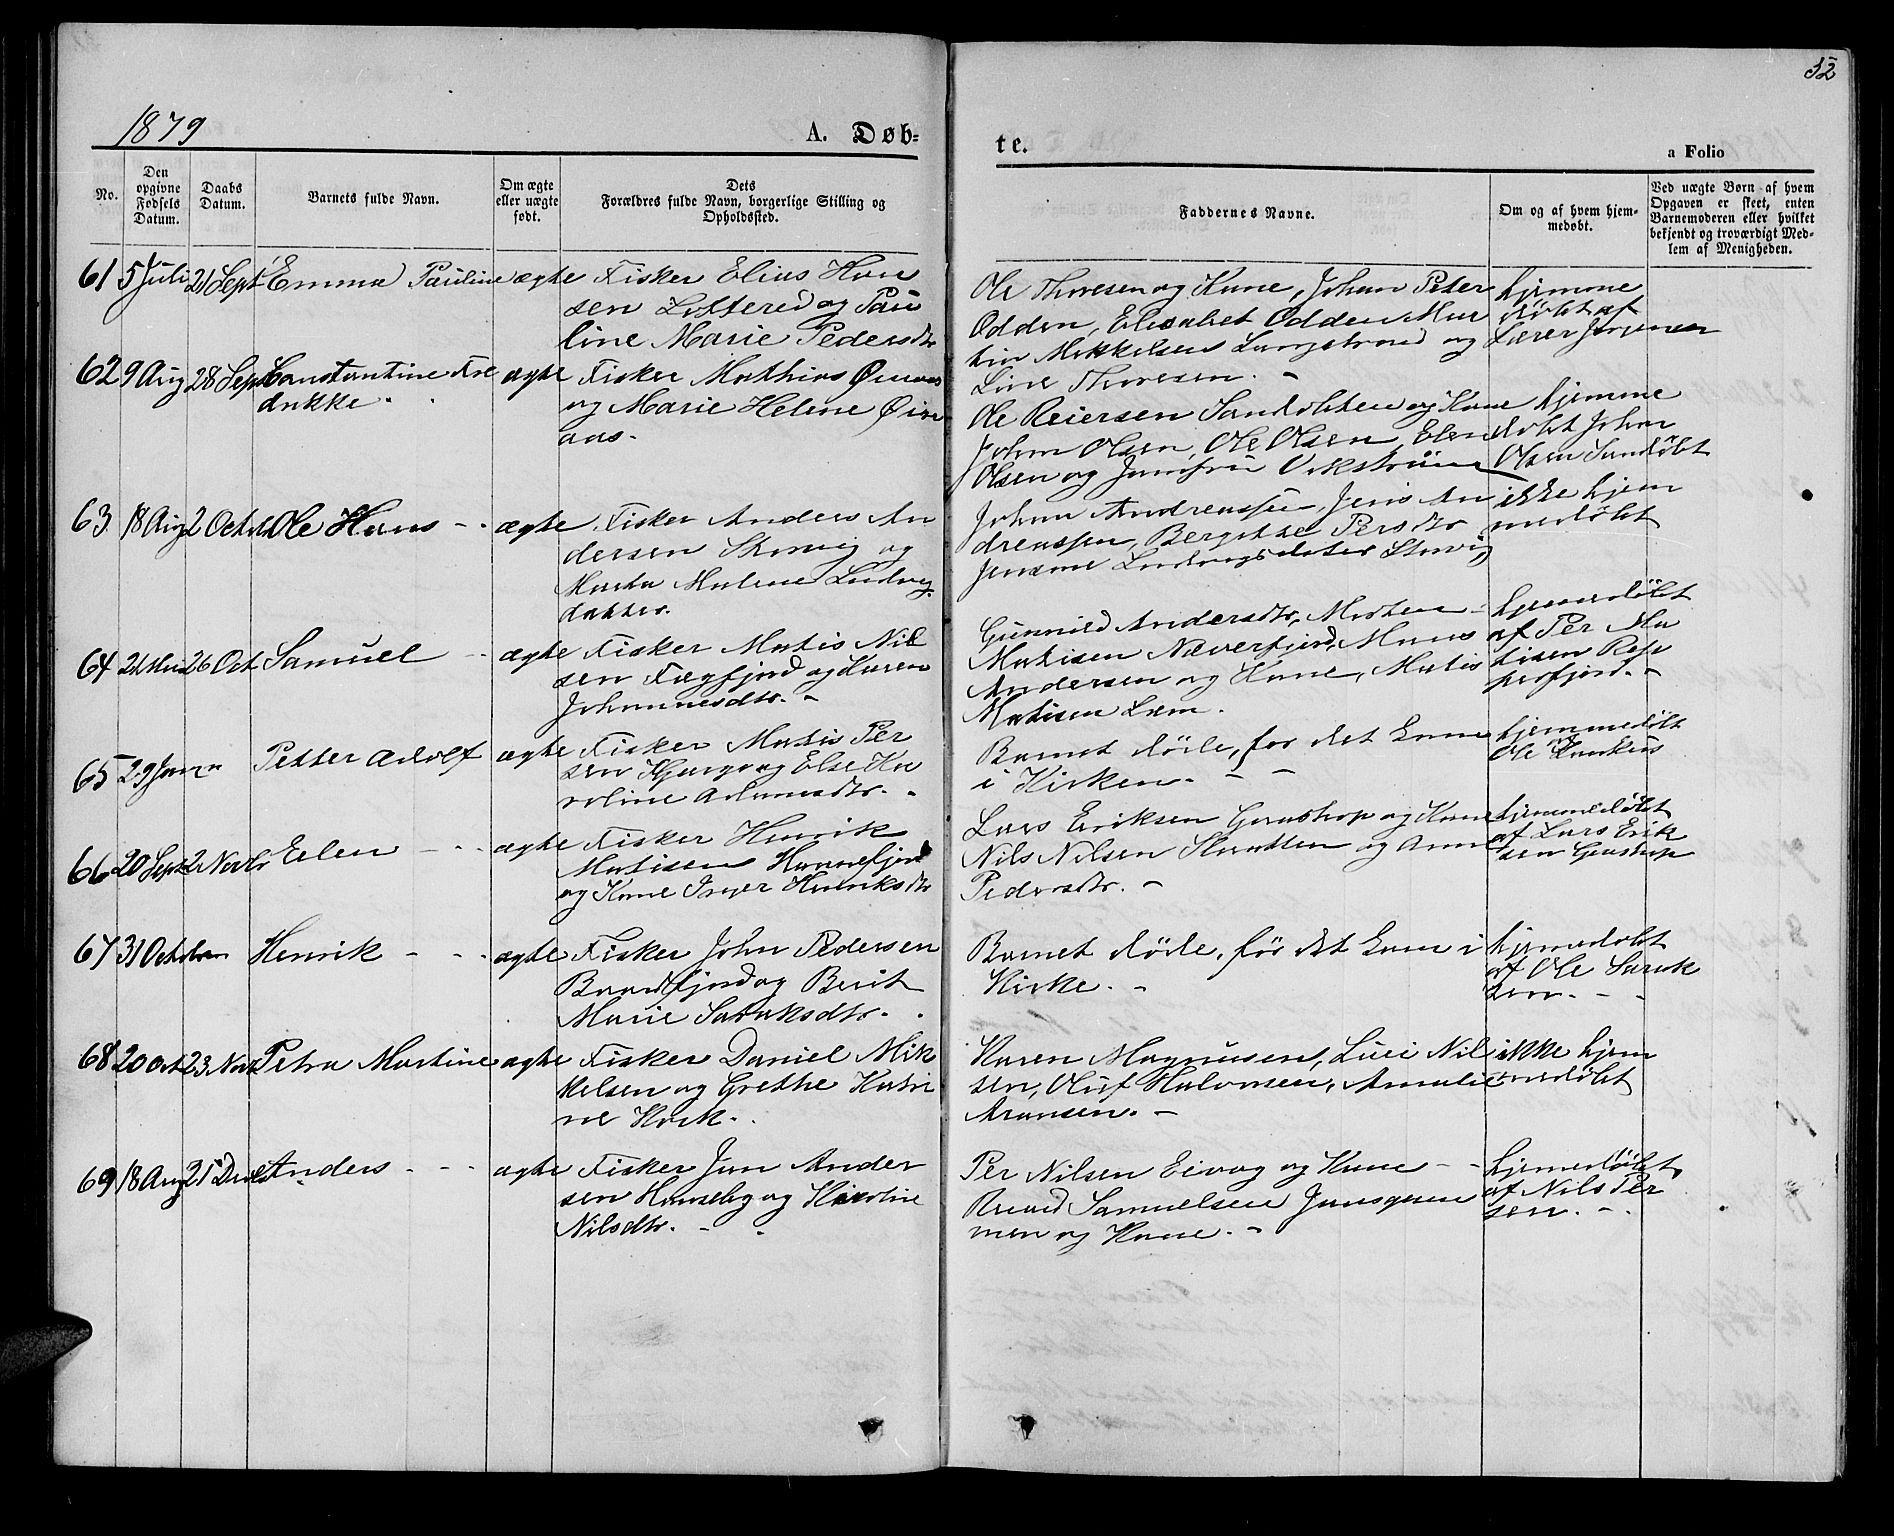 1879
A. Døb-
te.
32
a Folio
No.
Den opgivne Fødsels Datum.
Daabs Datum.
Barnets fulde Navn.
Om ægte eller uægte født.
Dets Forældres fulde Navn, borgerlige Stilling og Opholdssted.
Faddernes Navne.
Om og af hvem hjemmedøbt.
Ved uægte Børn af hvem Opgaven er skeet, enten Barnemoderen eller hvilket bekjendt og troværdigt Medlem af Menigheden.
61 5 Juli 21 Sept Emma Pauline ægte Fisker Elius Han
sen og Pau
line Marie Pedersdtr
Ole Thoresen og Kone, Johan Peter
Odden, Elisabet Odden Mar
tin Mikkelsen Langstrand og
Line Thoresen. -
hjemme
døbt af
Lærer Jørgensen
62 9 Aug 28 Sept Constantine Fre
drikke
ægte Fisker Mathias
og Marie Helene
aas.
Ole Reiersen og Kone
John Olsen, Ole Olsen, Elen
Olsen og Jomfru
hjemme
døbt John
Olsen
63 18 Aug 2 Octbr Ole Hans - - ægte Fisker Anders An
dersen og
Marta Malene Ludvig
datter.
Johan Andreassen, Jens An
dreassen, Bergitte Persdtr
Jensine Ludvigsdatter
ikke hjem
medøbt
64 26 Oct Samuel - - ægte Fisker Matis Nil
sen Fægfjord og Karen
Johannesdtr. -
Gunnild Andersdtr, Morten
Matisen Næverfjord, Mons
Andersen og Kone, Matis
Matisen
hjemmedøbt
af Per Ma
tisen Rep
perfjord. -
65 29 Petter Adolf ægte Fisker Matis Per
sen og Else Ka
roline Adamsdtr. -
Barnet døde, før det kom
i Kirken. - -
hjemmedøbt
af
Ole
66 20 Sept 2 Novbr Ellen - - - ægte Fisker Henrik
Matisen
og Kone Inger Henriksdtr
Lars Eriksen og Kone
Nils Nilsen og Anne
Pedersdtr. -
hjemmedøbt
af Lars Erik
sen
67 31 October Henrik - - - ægte Fisker John Pedersen
og Berit
Marie
Barnet døde, før det kom i
Kirke. -
hjemmedøbt
af Ole
sen. - -
68 20 Oct 23 Novb Petra Martine ægte Fisker Daniel Mik
kelsen og Grethe Katri
ne
Karen Magnusen, Nil
sen, Oluf Halvorsen, Amalie
Aronsen. -
ikke hjem
medøbt
69 18 Aug 21 Decbr Anders - - - ægte Fisker Jan Ander
sen og
Nilsdtr. -
Per Nilsen og Kone - -
Samuelsen
men og Kone. -
hjemmedøbt
af Nils Per
sen. - .